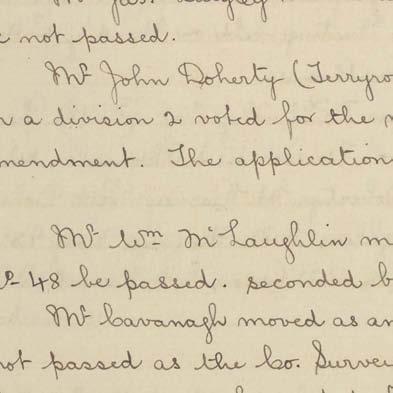 not passed.
Mr John Doherty (Terryro
a division 2 voted for the
mendment. The application
Mr Wm McLaughlin m
No 48 be passed. seconded b
Mr Cavanagh moved as an
not passed as the Co. Surve